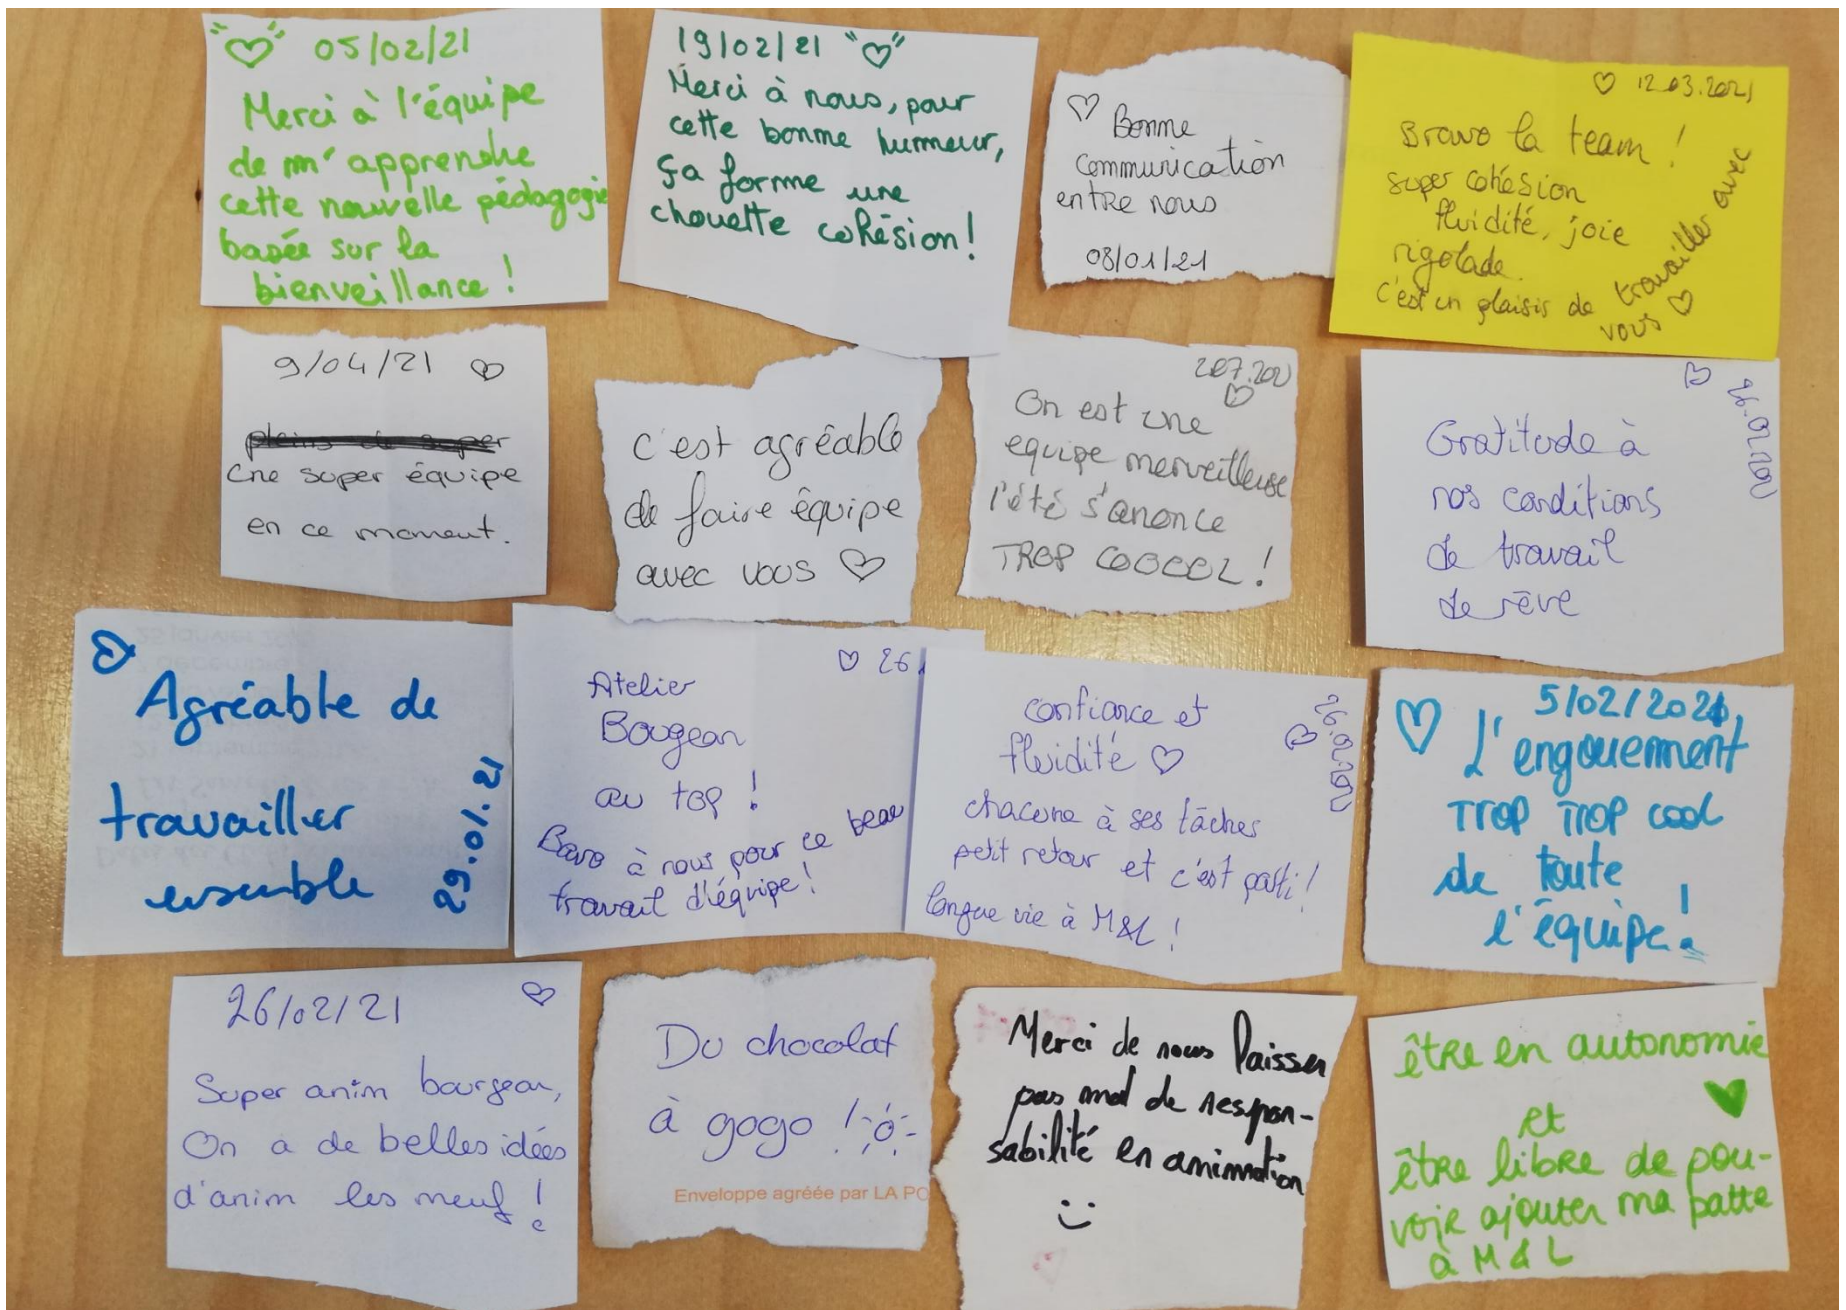 05/02/21
Merci à l'équipe
de m'apprendre
cette nouvelle pédagogie
basée sur la
bienveillance !
19/02/21
Merci à nous, pour
cette bonne humeur,
ça forme une
chouette cohésion !
Bonne
communication
entre nous
08/01/21
12.03.2021
Bravo la team !
super cohésion
fluidité, joie
rigolade.
c'est un plaisir de travailler avec
vous
9/04/21
pleins de super
Une super équipe
en ce moment.
c'est agréable
de faire équipe
avec vous
On est une
equipe merveilleuse
l'été s'anonce
TROP COOOOL !
Gratitude à
nos conditions
de travail
de rêve
Agréable de
travailler
ensemble
29.01.21
26
Atelier
Bougeon
au top !
Bavo à nous pour ce beau
travail d'équipe !
26.02.2021
confiance et
fluidité
chacune à ses tâches
petit retour et c'est parti !
longue vie à M&L !
5/02/2021,
L'engouement
TROP TROP cool
de toute
l'équipe !
26/02/21
Super anim bourgeon,
On a de belles idées
d'anim les meuf !
Du chocolat
à gogo !
Enveloppe agréée par LA PO
Merci de nous laisser
pas mal de respon-
sabilité en animation
être en autonomie
et
être libre de pou-
voir ajouter ma patte
à M & L